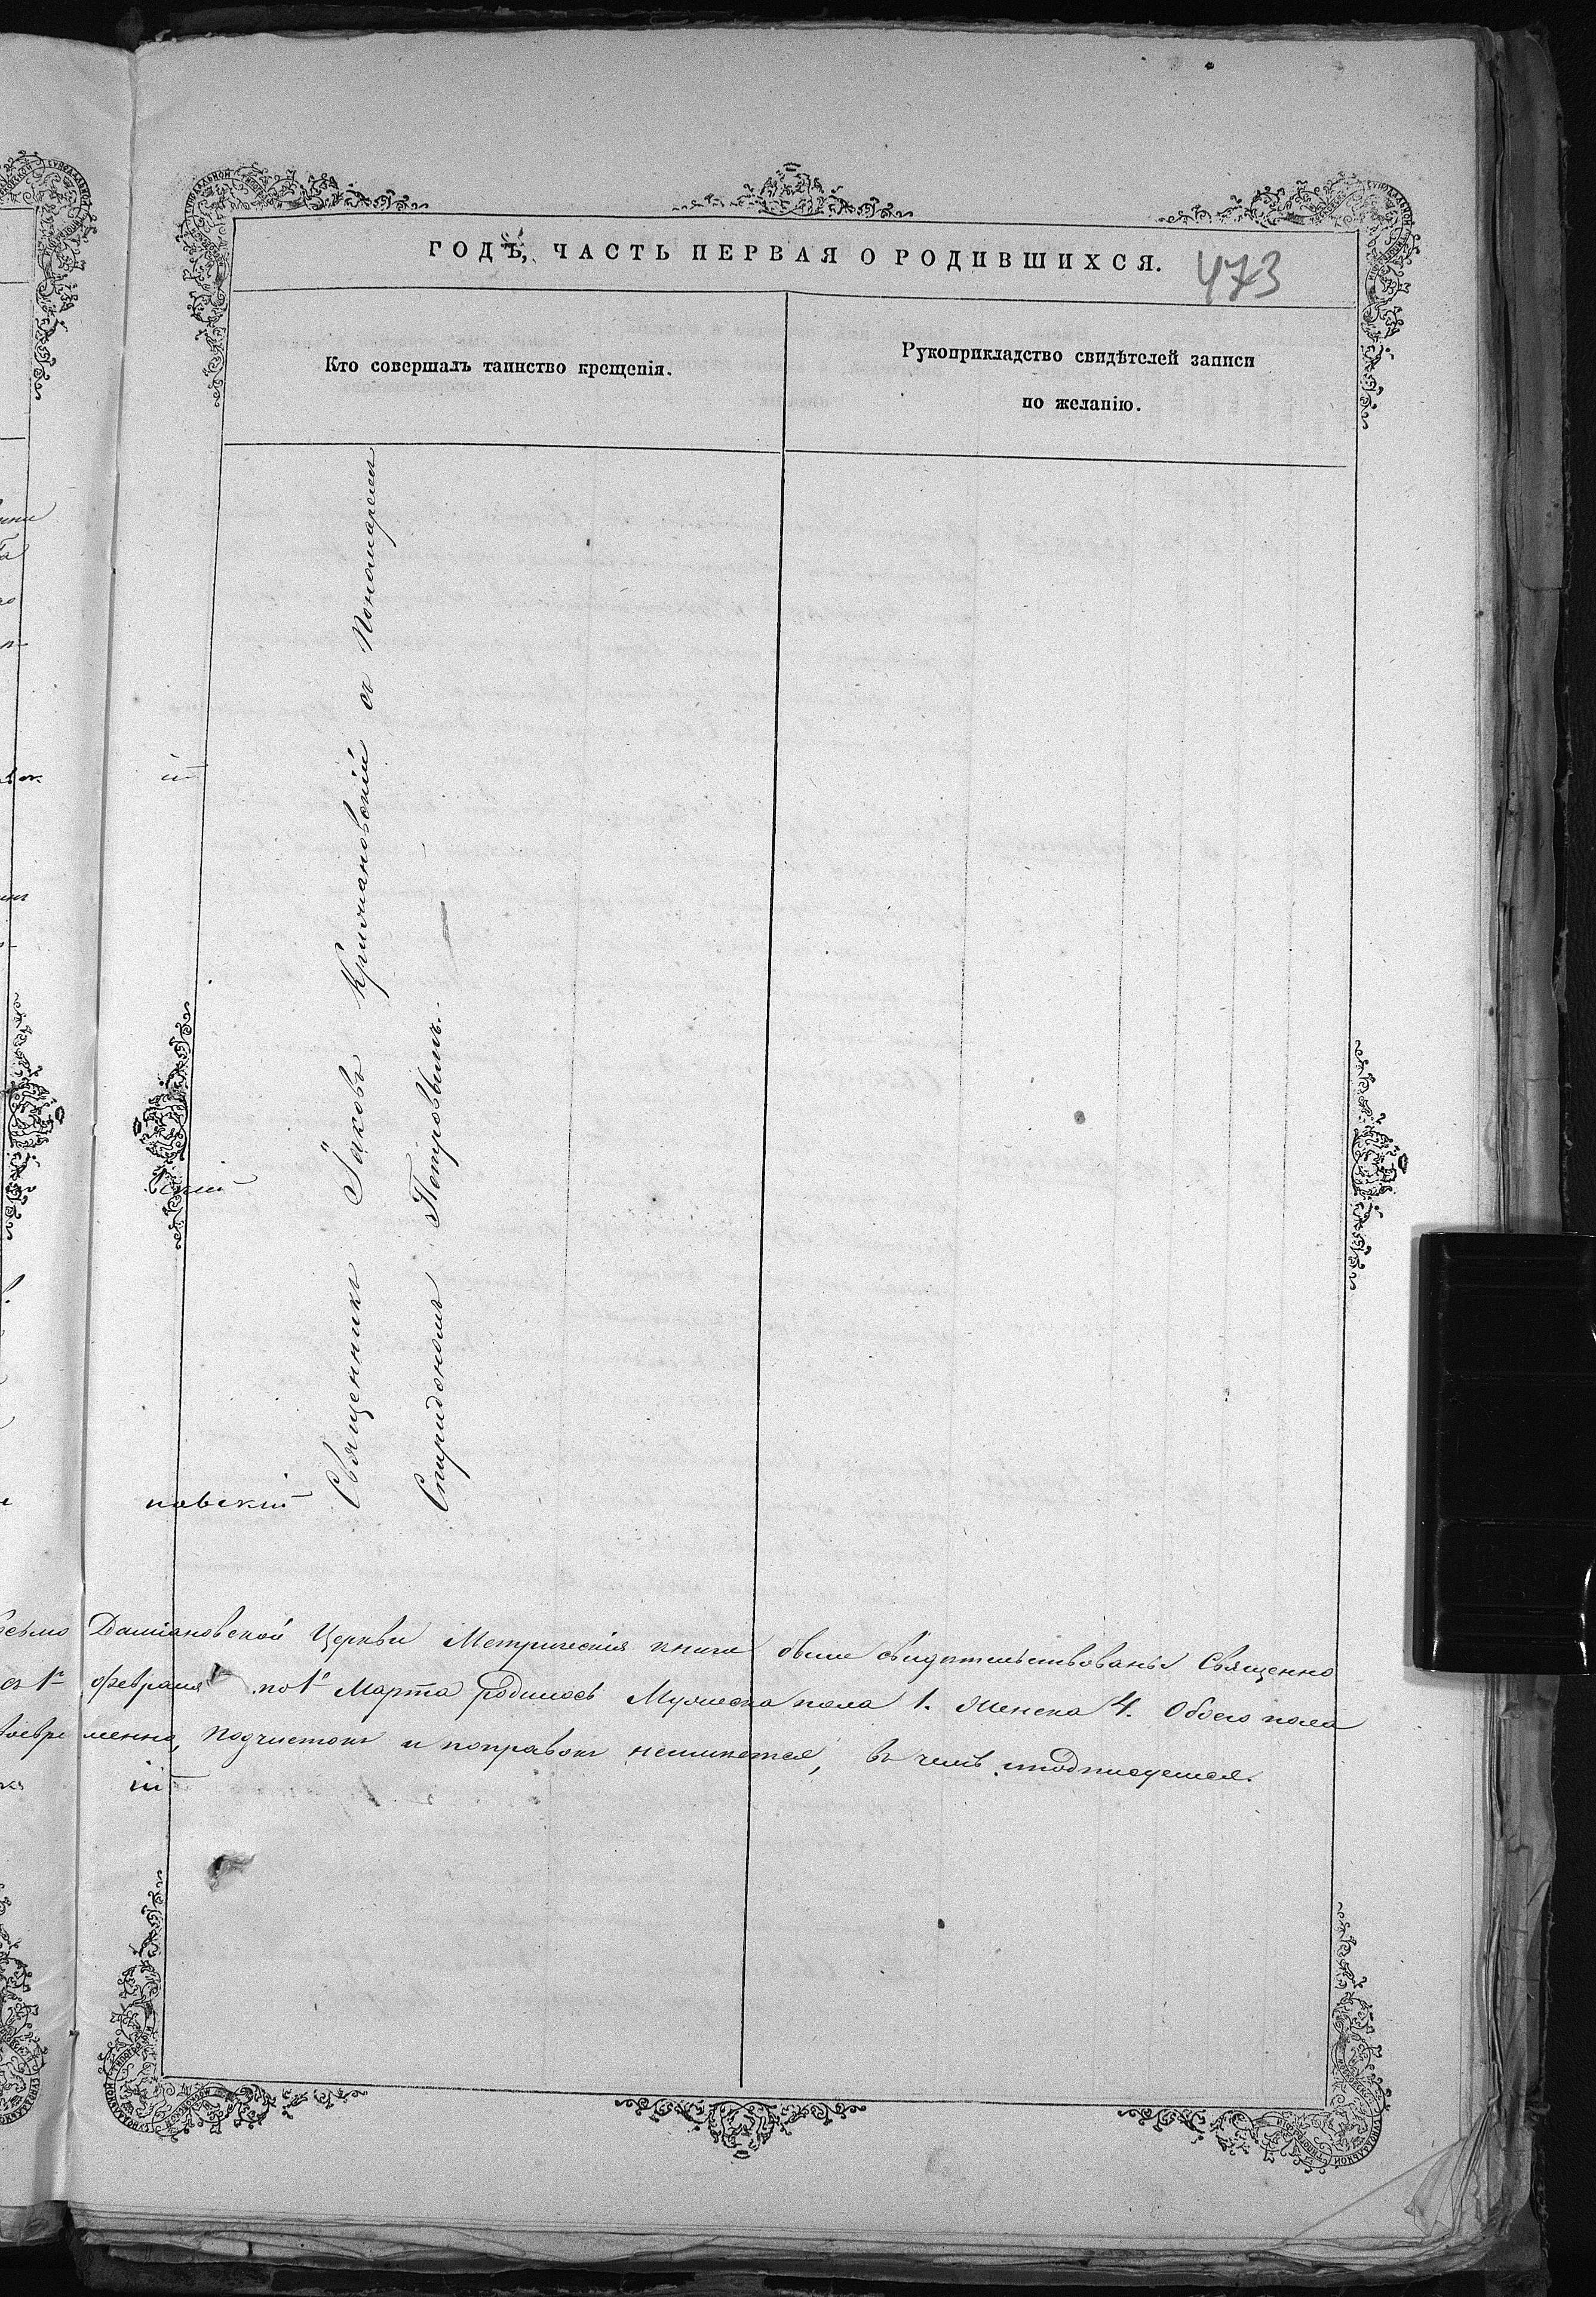 ГОДЪ, ЧАСТЬ ПЕРВАЯ О РОДИВШИХСЯ.
473
Кто совершалъ таинство крещенія.
Рукоприкладство свидѣтелей записи
по желанію.
Священникъ Іаковъ Кричиановскій съ Пономаремъ
Спиридономъ Петровымъ.
новскій
Даміановской Церкви Метрическія книги овсые свидѣтельствованы Священно
съ 1º февраля по 1º Марта родилось Мужеска пола 1. Женска 4. Обоего пола
менно, подчистокъ и поправокъ неимѣется, въ чемъ и подписуемся.